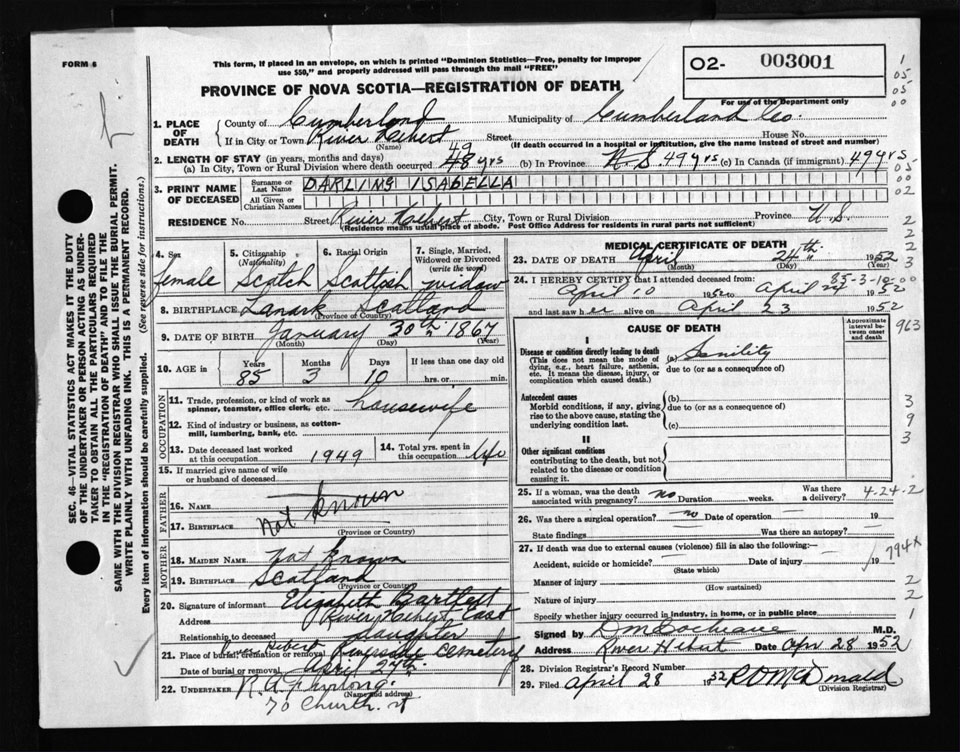 FORM 6
This form, if placed in an envelope, on which is printed "Dominion Statistics—Free, penalty for improper
use $50," and properly addressed will pass through the mail "FREE"
O2- 003001
PROVINCE OF NOVA SCOTIA—REGISTRATION OF DEATH
For use of the Department only
1. PLACE OF DEATH
County of Cumberland Municipality of Cumberland Co.
If in City or Town River Hebert Street House No.
(Name) (If death occurred in a hospital or institution, give the name instead of street and number)
2. LENGTH OF STAY (in years, months and days)
49
(a) In City, Town or Rural Division where death occurred 48 yrs (b) In Province N.S 49 yrs (c) In Canada (if immigrant) 49 yrs
3. PRINT NAME OF DECEASED
Surname or Last Name DARLING ISABELLA
All Given or Christian Names
RESIDENCE No. Street River Hebert City, Town or Rural Division Province N.S.
(Residence means usual place of abode. Post Office Address for residents in rural parts not sufficient)
4. Sex female
5. Citizenship (Nationality) Scotch
6. Racial Origin Scottish
7. Single, Married, Widowed or Divorced (write the word) widow
8. BIRTHPLACE Lanark Scotland
(Province or Country)
9. DATE OF BIRTH January 30th 1867
(Month) (Day) (Year)
10. AGE in Years 85 Months 3 Days 10 If less than one day old hrs. or min.
OCCUPATION
11. Trade, profession, or kind of work as spinner, teamster, office clerk, etc. housewife
12. Kind of industry or business, as cotton-mill, lumbering, bank, etc.
13. Date deceased last worked at this occupation 1949
14. Total yrs. spent in this occupation life
15. If married give name of wife or husband of deceased
FATHER
16. Name
Not Known
17. Birthplace
(Province or Country)
MOTHER
18. Maiden Name Not Known
19. Birthplace Scotland
(Province or Country)
20. Signature of informant Elizabeth Bartlett
Address River Hebert East
Relationship to deceased daughter
21. Place of burial, cremation or removal River Hebert cemetery
Date of burial or removal April 27th
22. Undertaker
(Name and address)
70 Church St
MEDICAL CERTIFICATE OF DEATH
23. DATE OF DEATH April 24th 1952
(Month) (Day) (Year)
85-3-10
24. I HEREBY CERTIFY that I attended deceased from:
April 10 1952 to April 24 1952
and last saw her alive on April 23 1952
CAUSE OF DEATH
Approximate interval between onset and death
I
Disease or condition directly leading to death (a) Senility
(This does not mean the mode of dying, e.g., heart failure, asthenia, etc. It means the disease, injury, or complication which caused death.)
due to (or as a consequence of)
Antecedent causes (b)
Morbid conditions, if any, giving rise to the above cause, stating the underlying condition last.
due to (or as a consequence of)
(c)
II
Other significant conditions
contributing to the death, but not related to the disease or condition causing it.
25. If a woman, was the death associated with pregnancy? no Duration weeks. Was there a delivery? 4-24-2
26. Was there a surgical operation? no Date of operation 19
State findings Was there an autopsy?
27. If death was due to external causes (violence) fill in also the following:—
794x
Accident, suicide or homicide? Date of injury 19
(State which)
Manner of injury
(How sustained)
Nature of injury
Specify whether injury occurred in industry, in home, or in public place
Signed by D M Cochrane M.D.
Address River Hebert Date Apr 28 1952
28. Division Registrar's Record Number
29. Filed April 28 1952
(Division Registrar)
SEC. 46—VITAL STATISTICS ACT MAKES IT THE DUTY
OF THE UNDERTAKER OR PERSON ACTING AS UNDER-
TAKER TO OBTAIN ALL THE PARTICULARS REQUIRED
IN THE "REGISTRATION OF DEATH" AND TO FILE THE
SAME WITH THE DIVISION REGISTRAR WHO SHALL ISSUE THE BURIAL PERMIT.
WRITE PLAINLY WITH UNFADING INK. THIS IS A PERMANENT RECORD.
Every item of information should be carefully supplied. (See reverse side for instructions.)
1
05
05
00
05
00
02
2
2
2
3
00
963
3
9
3
2
2
1